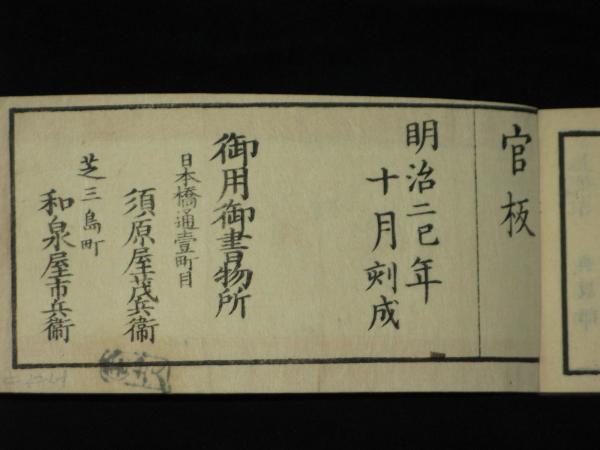 官板
明治二巳年
十月刻成
御用御書物所
日本橋通壹町目
須原屋茂兵衞
芝三島町
和泉屋市兵衞